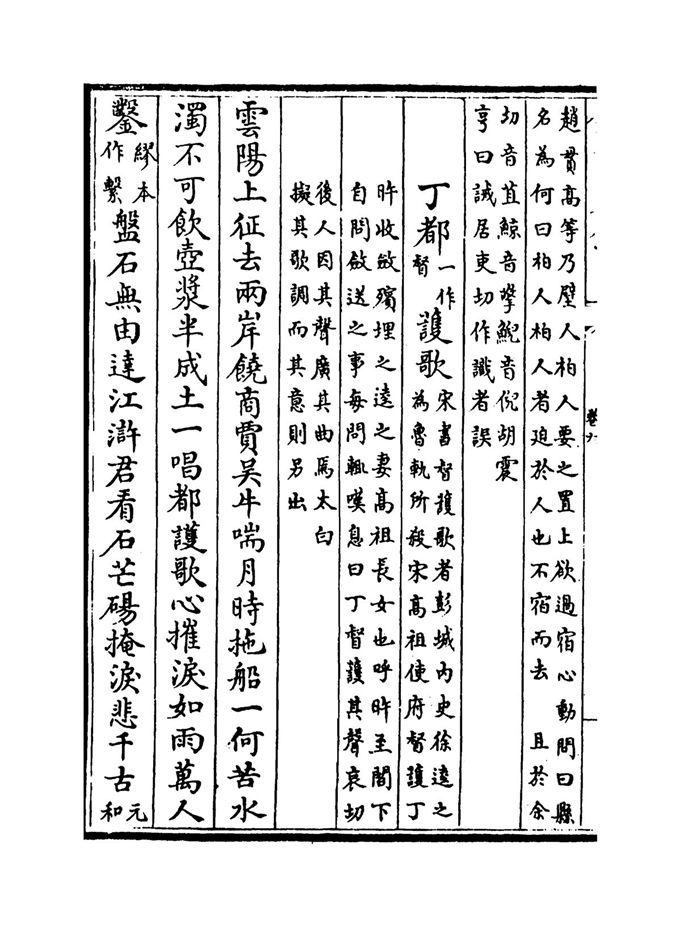 趙貫高等乃壁人柏人要之置上欲過宿心動問曰縣
名為何曰柏人柏人者迫於人也不宿而去 且於余
切音苴鯨音擎鯢音倪胡震
亨曰誡居吏切作譏者誤
丁都一作督護歌宋書督護歌者彭城内史徐逵之
為魯軌所殺宋髙祖使府督護丁
旿收斂殯埋之逵之妻髙祖長女也呼旿至閤下
自問斂送之事每問輙嘆息曰丁督護其聲哀切
後人因其聲廣其曲焉太白
擬其歌調而其意則另出
雲陽上征去兩岸饒商賈吴牛喘月時拖船一何苦水
濁不可飲壺漿半成土一唱都護歌心摧淚如雨萬人
鑿繆本作繫盤石無由達江滸君看石芒碭掩淚悲千古元和